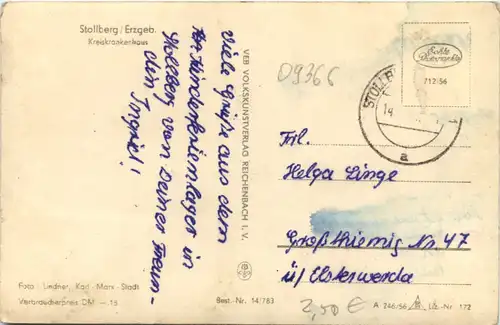 Stollberg / Erzgeb.
Kreiskrankenhaus
Viele Grüße aus dem
Kinderferienlager in
Stollberg von Deiner
din Ingrid!
VEB VOLKSKUNSTVERLAG REICHENBACH I. V.
09366
Echte Photographie
712/56
STOLLB
14
a
Frl.
Helga Linge
Großthiemig Nr. 47
ü/ Elsterwerda
2,50 €
Foto: Lindner, Karl-Marx-Stadt
Verbraucherpreis DM —.15
Best.-Nr. 14/783
A 246/56
Liz.-Nr. 172